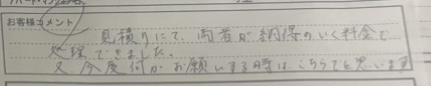 お客様コメント
見積りにて、両者が納得のいく料金で
処理できました。
又、今度何かお願いする時はこちらでと思います